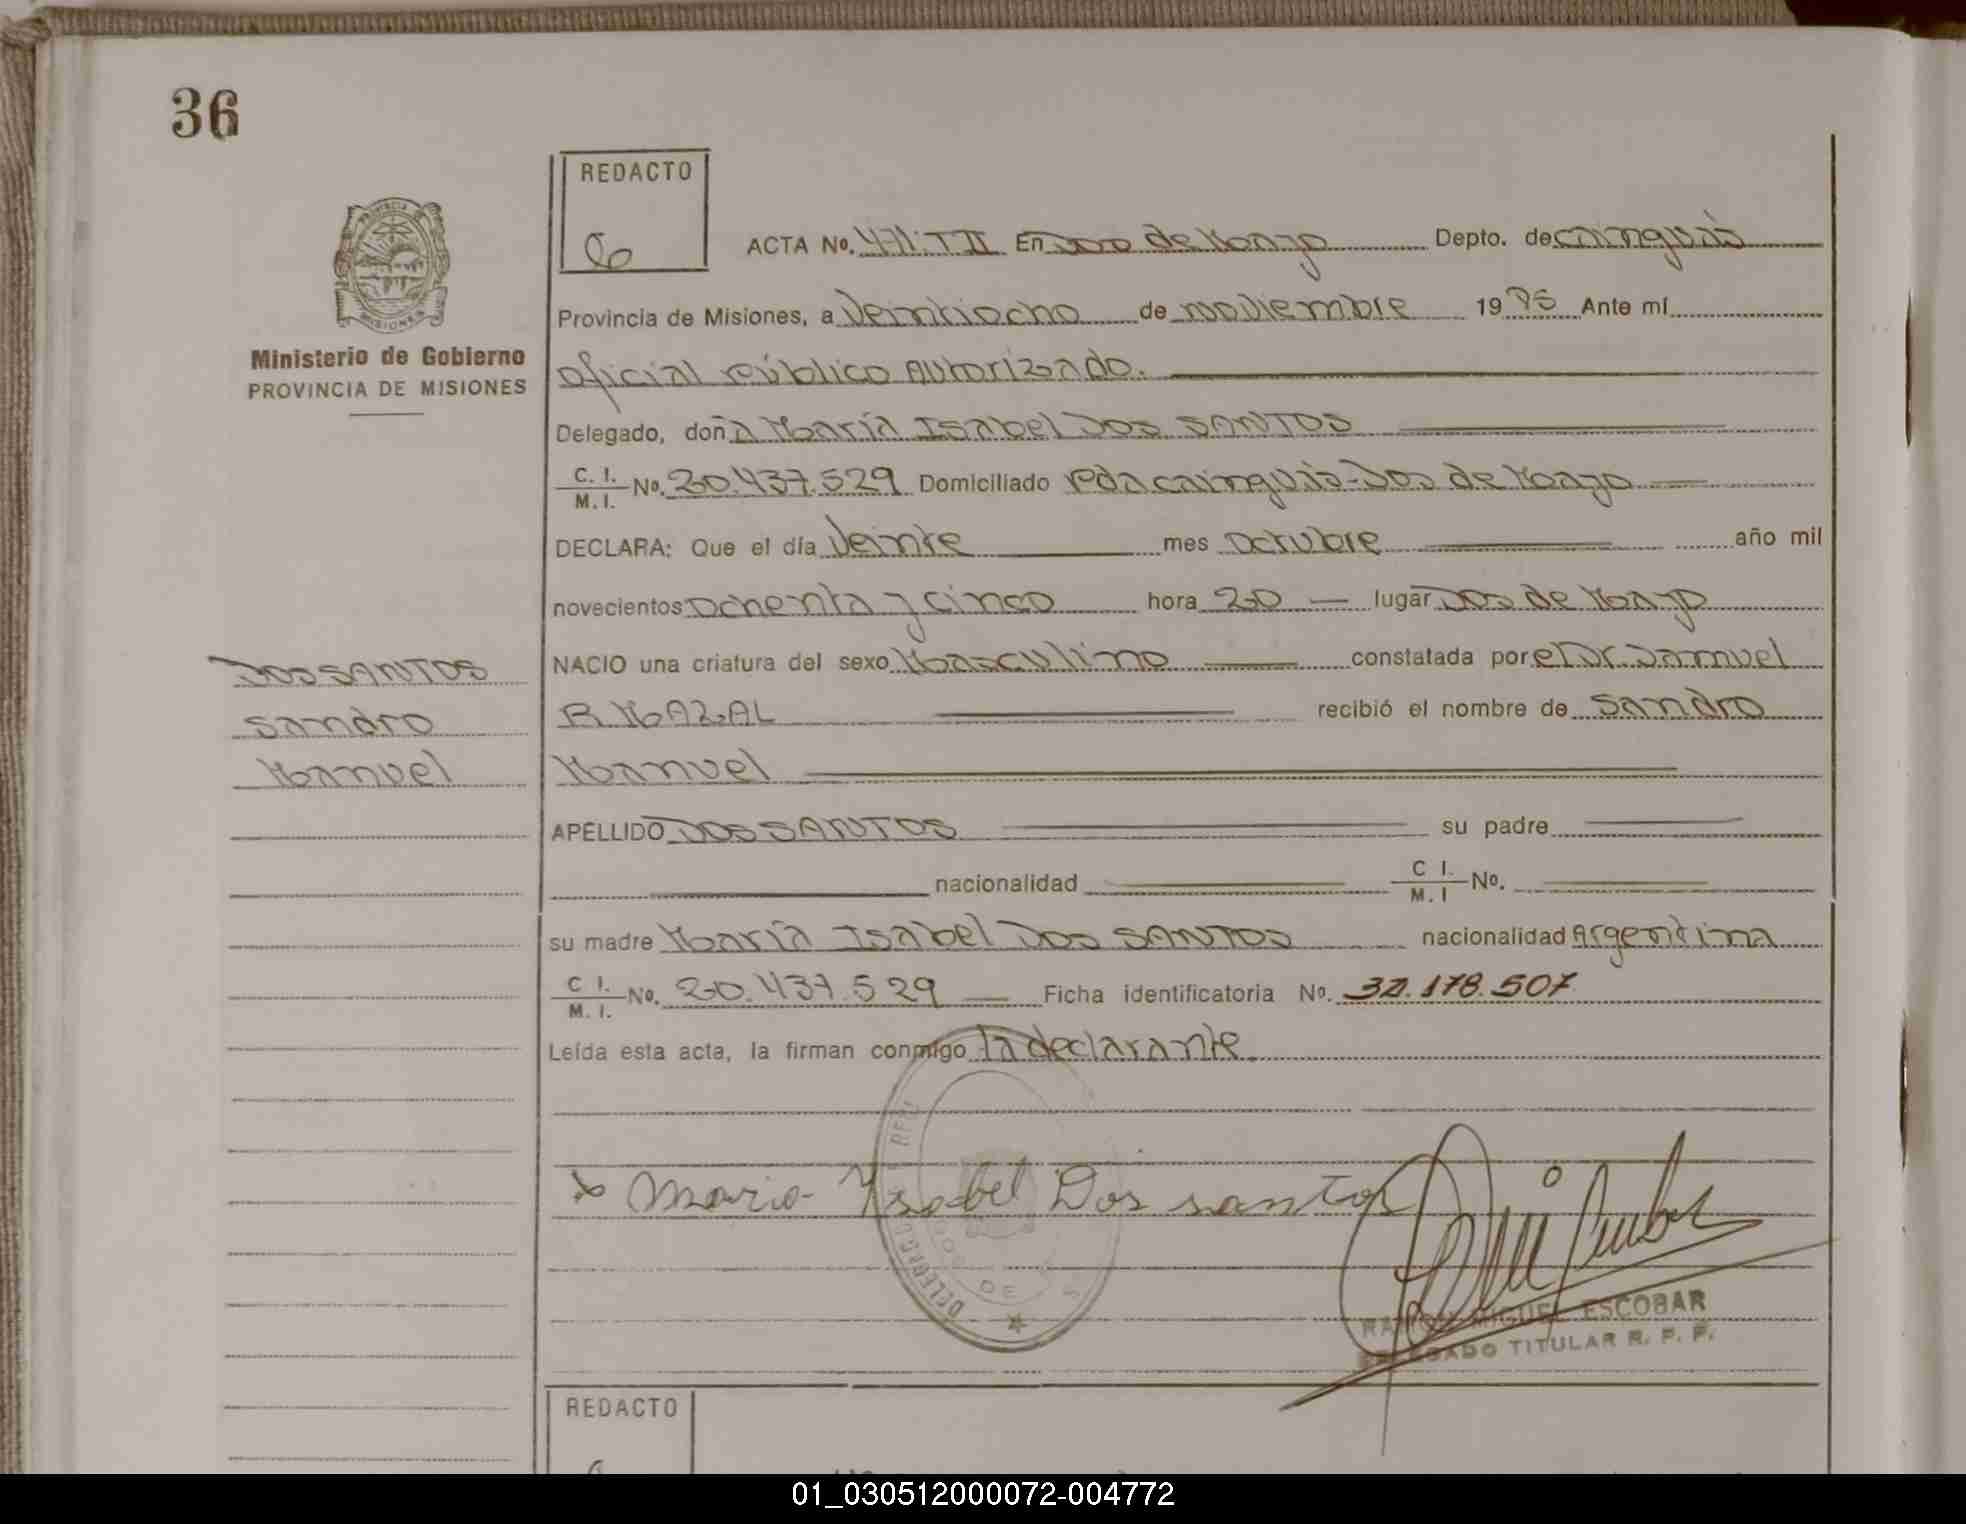 36
REDACTO
ACTA No. 471. T II En Dos de Mayo Depto. de cainguás
Provincia de Misiones, a Veintiocho de noviembre 1985 Ante mí
Ministerio de Gobierno
PROVINCIA DE MISIONES
oficial público Autorizado.
Delegado, doña María Isabel Dos SANTOS
C. I.
M. I. No. 20.437.529 Domiciliado Pda cainguás-Dos de Mayo
DECLARA: Que el día Veinte mes octubre año mil
novecientos ochenta y cinco hora 20 lugar Dos de Mayo
NACIO una criatura del sexo Masculino constatada por el Dr. Samuel
R. MAZAL recibió el nombre de Sandro
Manuel
DOS SANTOS
Sandro
Manuel
APELLIDO DOS SANTOS su padre
nacionalidad C I. M. I No.
su madre María Isabel Dos SANTOS nacionalidad Argentina
C I.
M. I. No. 20.437.529 Ficha identificatoria No. 32.178.507
Leída esta acta, la firman conmigo la declarante.
Maria Ysabel Dos santos
DE
RAMON MIGUEL ESCOBAR
DELEGADO TITULAR R. P. P.
REDACTO
01_030512000072-004772